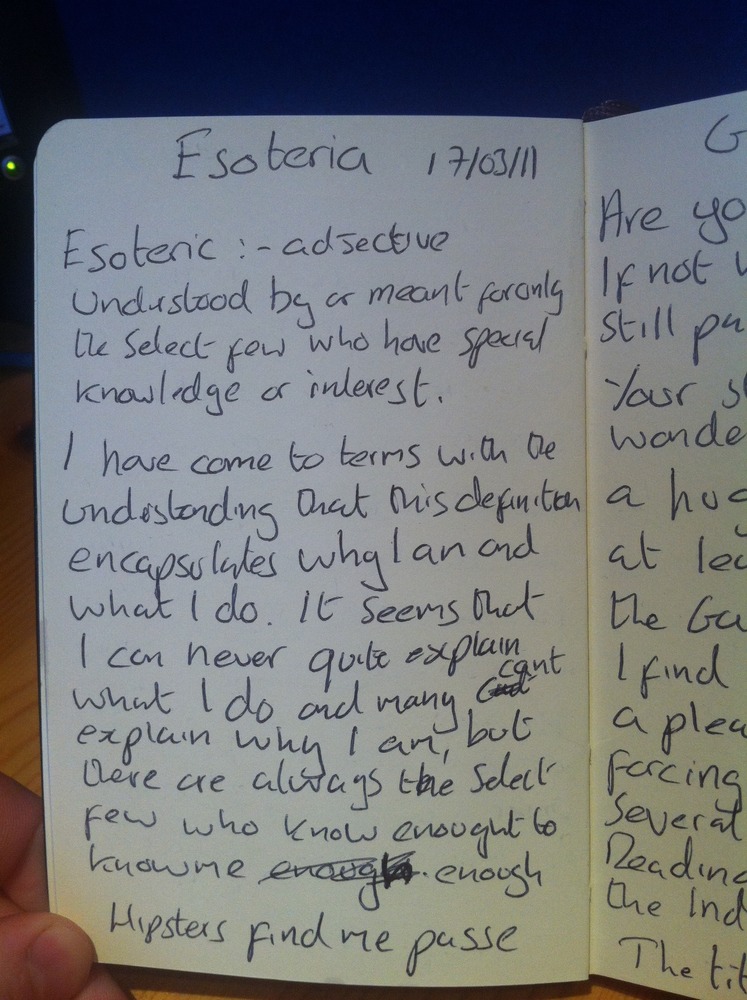 Esoteria 17/03/11
Esoteric :- adjective
Understood by or meant for only
the select few who have special
knowledge or interest.
I have come to terms with the
understanding that this definition
encapsulates why I am and
what I do. It seems that
I can never quite explain
what I do and many cant
explain why I am, but
there are always the select
few who know enought to
know me enough. enough
Hipsters find me passe
G
Are yo
If not w
still pu
Your s
wonde
a hug
at lea
the Ga
I find
a plea
forcing
several
Reading
the Ind
The tit